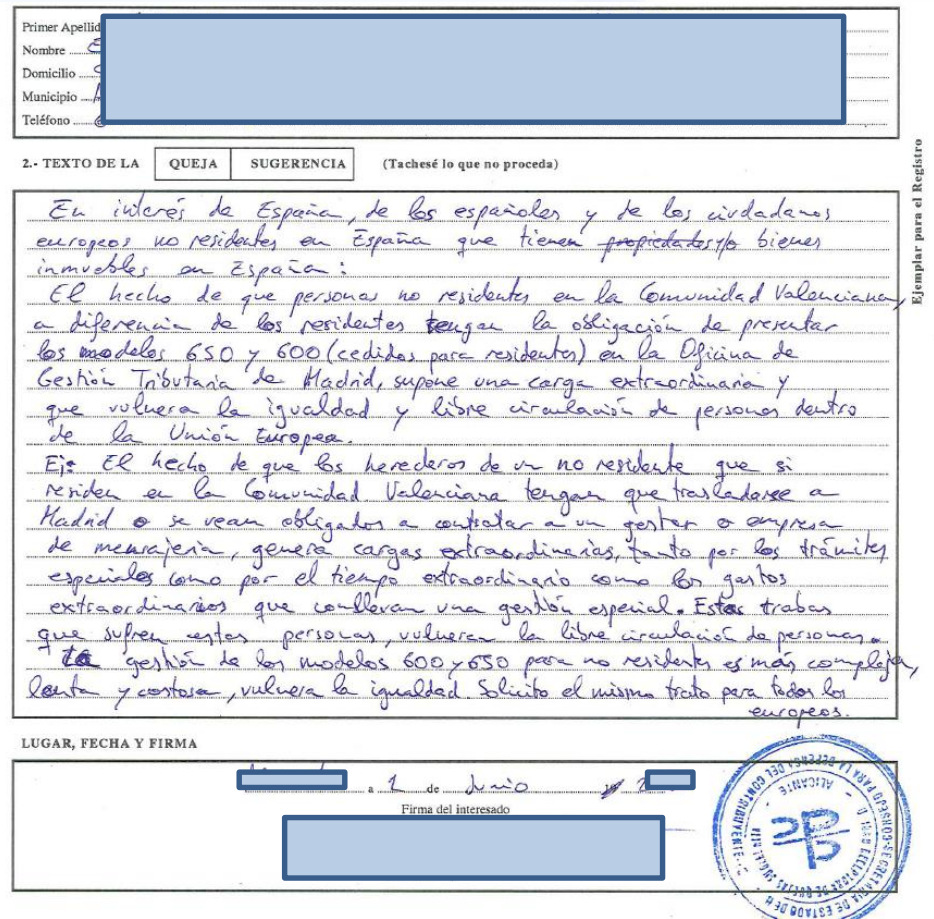 Primer Apellid
Nombre
Domicilio
Municipio
Teléfono
Ejemplar para el Registro
2.- TEXTO DE LA QUEJA SUGERENCIA (Tachesé lo que no proceda)
En interés de España, de los españoles y de los ciudadanos
europeos no residentes en España que tienen propiedades y/o bienes
inmuebles en España:
El hecho de que personas no residentes en la Comunidad Valenciana,
a diferencia de los residentes tengan la obligación de presentar
los modelos 650 y 600 (cedidos para residentes) en la Oficina de
Gestión Tributaria de Madrid, supone una carga extraordinaria y
que vulnera la igualdad y libre circulación de personas dentro
de la Unión Europea.
Ej: El hecho de que los herederos de un no residente que si
residen en la Comunidad Valenciana tengan que trasladarse a
Madrid o se vean obligados a contratar a un gestor o empresa
de mensajería, genera cargas extraordinarias, tanto por los trámites
especiales como por el tiempo extraordinario como los gastos
extraordinarios que conllevan una gestión especial. Estas trabas
que sufren estas personas, vulneran la libre circulación de personas.
La gestión de los modelos 600 y 650 para no residentes es más compleja,
lenta y costosa, vulnera la igualdad. Solicito el mismo trato para todos los
europeos.
LUGAR, FECHA Y FIRMA
a 1 de Junio
Firma del interesado
CONSEJO PARA LA DEFENSA DEL CONTRIBUYENTE
SECRETARIA DE ESTADO DE H
ALICANTE